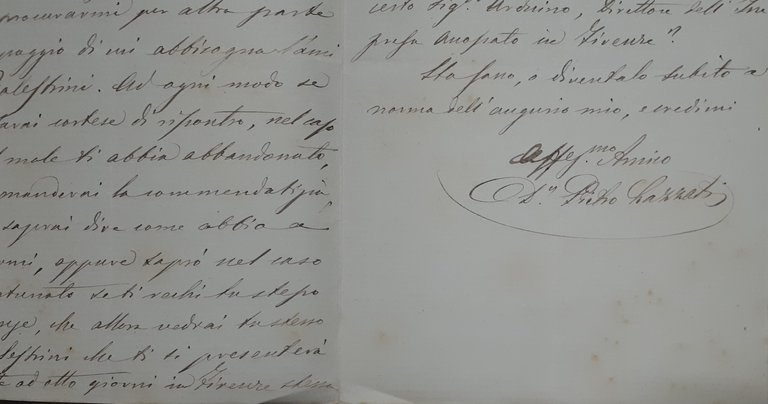 procurarmi per altra parte
appoggio di cui abbisogna l'ami
Palestrini. Ad ogni modo se
sarai cortese di risposta, nel caso
l male ti abbia abbandonato,
manderai la commendatizia,
saprai dire come abbia a
, oppure saprò nel caso
se ti rechi tu stesso
, che allora vedrai tu stesso
lestrini che ti si presenterà
ad otto giorni in Firenze stessa
certo Sigr. Arduino, Direttore dell'Im
presa Anopato in Firenze".
Sta sano, o diventalo subito a
norma dell'augurio mio, e credimi
Affe.mo Amico
Dr. Pietro Lazzati